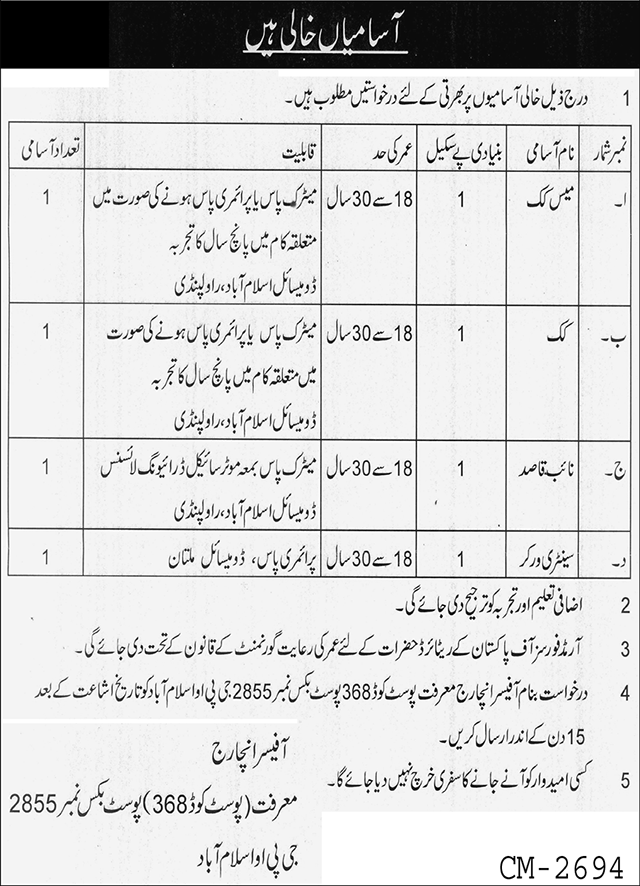 آسامیاں خالی ہیں
1 درج ذیل خالی آسامیوں پر بھرتی کے لئے درخواستیں مطلوب ہیں۔
نمبر شمار نام آسامی بنیادی پے سکیل عمر کی حد قابلیت تعداد آسامی
ا۔ میس کک 1 18 سے 30 سال میٹرک پاس یا پرائمری پاس ہونے کی صورت میں 1
متعلقہ کام میں پانچ سال کا تجربہ
ڈومیسائل اسلام آباد، راولپنڈی
ب۔ کک 1 18 سے 30 سال میٹرک پاس یا پرائمری پاس ہونے کی صورت 1
میں متعلقہ کام میں پانچ سال کا تجربہ
ڈومیسائل اسلام آباد، راولپنڈی
ج۔ نائب قاصد 1 18 سے 30 سال میٹرک پاس بمعہ موٹر سائیکل ڈرائیونگ لائسنس 1
ڈومیسائل اسلام آباد، راولپنڈی
د۔ سینٹری ورکر 1 18 سے 30 سال پرائمری پاس، ڈومیسائل ملتان 1
2 اضافی تعلیم اور تجربہ کو ترجیح دی جائے گی۔
3 آرمڈ فورسز آف پاکستان کے ریٹائرڈ حضرات کے لئے عمر کی رعایت گورنمنٹ کے قانون کے تحت دی جائے گی۔
4 درخواست بنام آفیسر انچارج معرفت پوسٹ کوڈ 368 پوسٹ بکس نمبر 2855 جی پی او اسلام آباد کو تاریخ اشاعت کے بعد
15 دن کے اندر ارسال کریں۔
5 کسی امیدوار کو آنے جانے کا سفری خرچ نہیں دیا جائے گا۔
آفیسر انچارج
معرفت (پوسٹ کوڈ 368) پوسٹ بکس نمبر 2855
جی پی او اسلام آباد
CM-2694